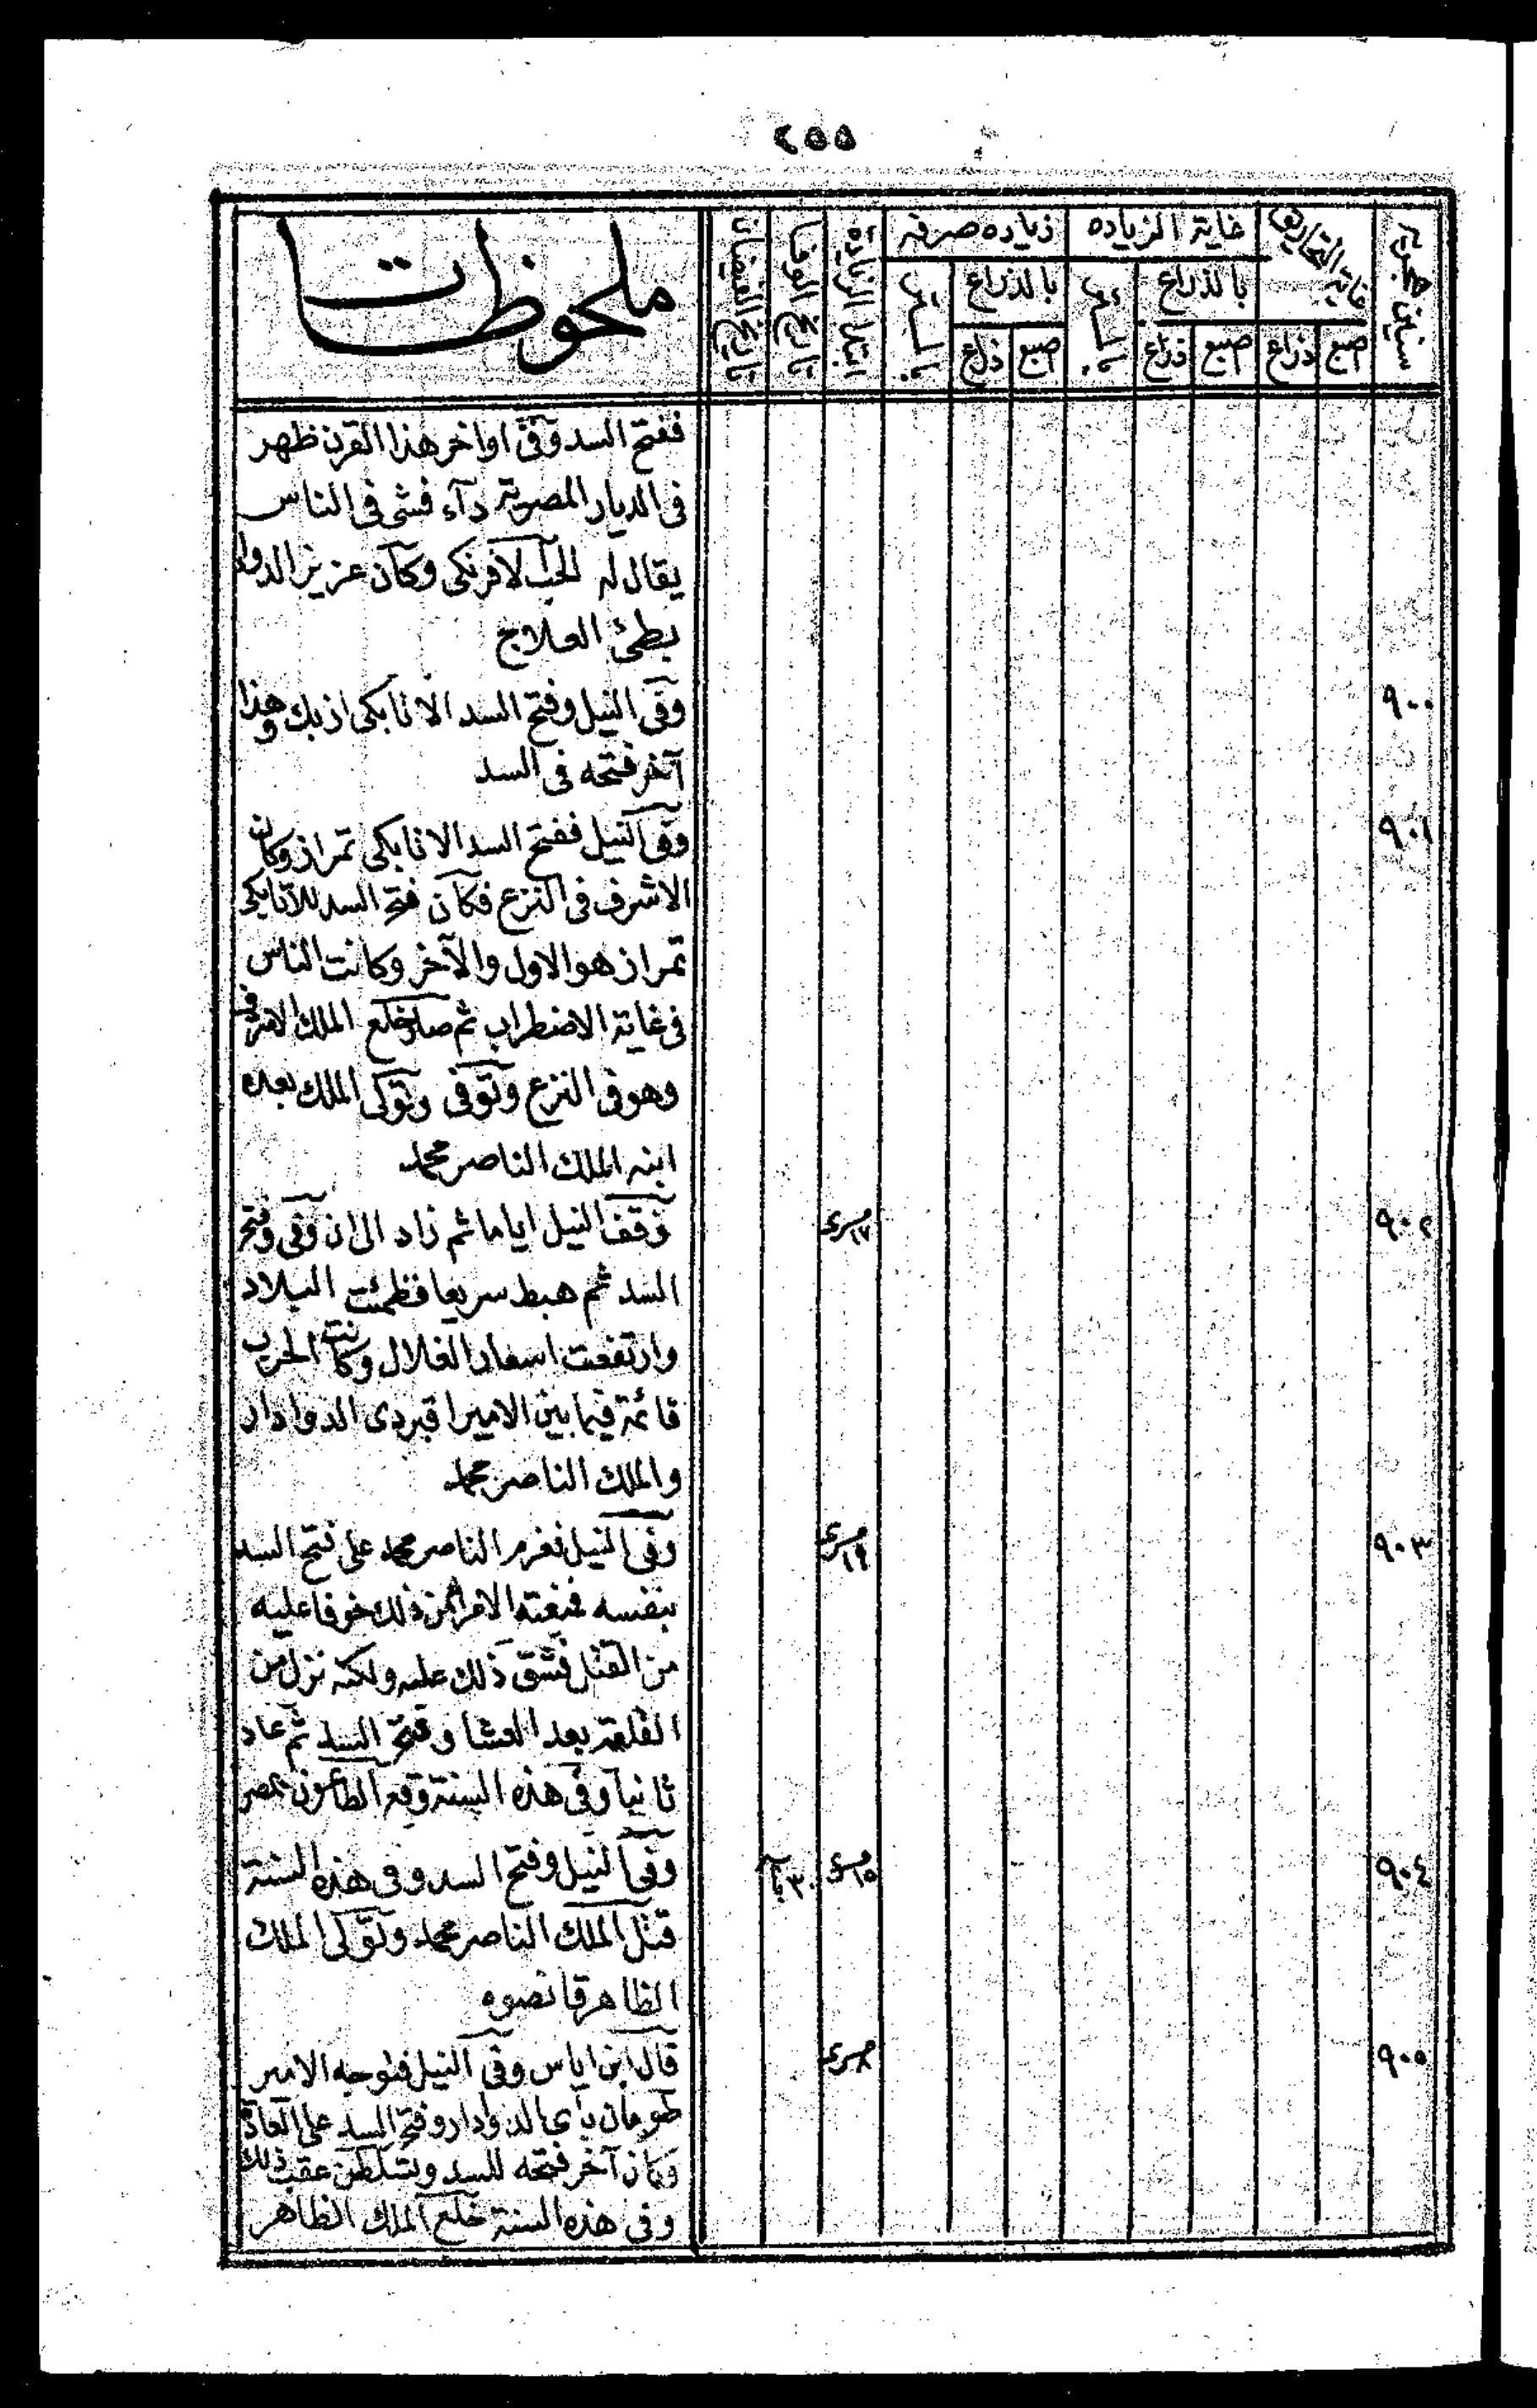 ٢٥٥
سنين هجرية
غاية التحاريق
غاية الزياده
زياده صرفه
ابتدا الزيادة
تاريخ الوفا
تاريخ الفيضان
ملحوظات
بالذراع
بالذراع
اصبع
ذراع
اصبع
ذراع
اصبع
ذراع
ففتح السد وفى اواخر هذا القرن ظهر
فى الديار المصرية دآء فشى فى الناس
يقال له الحب الافرنكى وكان عزيز الدوا
بطئ العلاج
٩٠٠
وفى النيل وفتح السد الاتابكى ازبك وهذا
آخر فتحه فى السد
٩٠١
وفى النيل ففتح السد الاتابكى تمراز وكان
الاشرف فى النزع فكان فتح السد للاتابكى
تمراز هو الاول والآخر وكانت الناس
فى غاية الاضطراب ثم صار خلع الملك الاشرف
وهو فى النزع وتوفى وتولى الملك بعده
ابنه الملك الناصر محمد
٩٠٢
١٧ مسرى
توقف النيل اياما ثم زاد الى ان وفى وفتح
السد ثم هبط سريعا فظمئت البلاد
وارتفعت اسعار الغلال وكانت الحرب
قائمة فيما بين الامير اقبردى الدوادار
والملك الناصر محمد
٩٠٣
١٩ مسرى
وفى النيل فعزم الناصر محمد على فتح السد
بنفسه فمنعته الامرا من ذلك خوفا عليه
من القتل فشق ذلك عليه ولكنه نزل من
القلعة بعد العشا وفتح السد ثم عاد
ثانيا وفى هذه السنة وقع الطاعون بمصر
٩٠٤
١٥ مسرى
وفى النيل وفتح السد وفى هذه السنة
قتل الملك الناصر محمد وتولى الملك
الظاهر قانصوه
٩٠٥
٨ مسرى
قال ابن اياس وفى النيل فتوجه الامير
طومان باى الدوادار وفتح السد على العادة
وكان آخر فتحه للسد وتسلطن عقب ذلك
وفى هذه السنة خلع الملك الظاهر